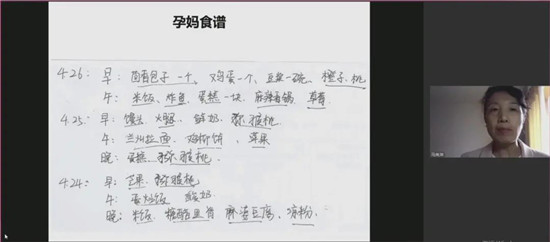 孕妈食谱
4.26: 早: 茴香包子一个、鸡蛋一个、豆浆一碗、橙子、桃
午: 米饭、炸鱼、蛋糕一块、麻辣香锅、草莓
4.25: 早: 馒头、火腿、酸奶、猕猴桃
午: 兰州拉面、鸡柳饼、苹果
晚: 蛋糕、猕猴桃
4.24: 早: 芒果、猕猴桃
午: 蛋炒饭 酸奶
晚: 米饭、糖醋 麻婆豆腐、凉粉.